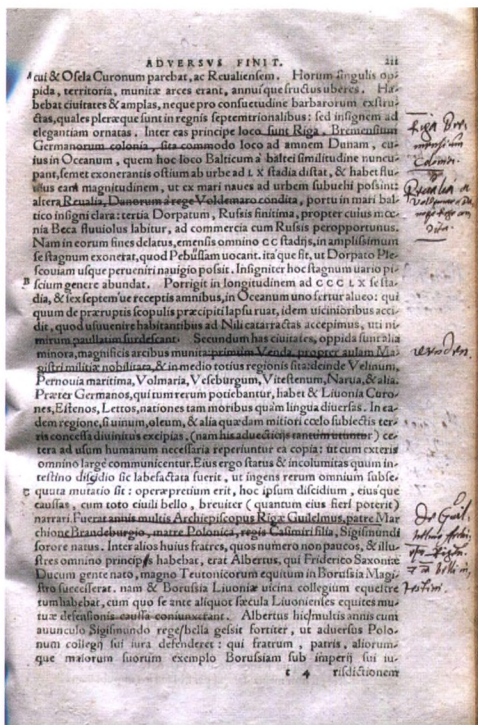 ADVERSVS FINIT.
cui & Osela Curonum parebat, ac Reualiensem. Horum singulis op-
pida, territoria, munitæ arces erant, annuique fructus uberes. Ha-
bebat ciuitates & amplas, neque pro consuetudine barbarorum exstru-
ctas, quales pleræque sunt in regnis septemtrionalibus: sed insignem ad
elegantiam ornatas. Inter eas principe loco sunt Riga, Bremensium
Germanorum colonia, sita commodo loco ad amnem Dunam, cu-
ius in Oceanum, quem hoc loco Balticum a baltei similitudine nuncu-
pant, semet exonerantis ostium ab urbe ad LX stadia distat, & habet flu-
uius eam magnitudinem, ut ex mari naues ad urbem subuehi possint:
altera Reualia, Danorum a rege Voldemaro condita, portu in mari bal-
tico insigni clara: tertia Dorpatum, Russis finitima, propter cuius mœ-
nia Beca fluuiolus labitur, ad commercia cum Russis peropportunus.
Nam in eorum fines delatus, emensis omnino CC stadijs, in amplissimum
se stagnum exonerat, quod Pebussam uocant. ita que fit, ut Dorpato Ple-
scouiam usque perueniri nauigio possit. Insigniter hoc stagnum uario pi-
B scium genere abundat. Porrigit in longitudinem ad CCCLX se sta-
dia, & sex septem'ue receptis amnibus, in Oceanum uno fertur alueo: qui
quum de præruptis scopulis præcipiti lapsu ruat, idem uicinioribus acci-
dit, quod usuuenire habitantibus ad Nili catarractas accepimus, uti ni-
mirum paullatim surdescant. Secundum has ciuitates, oppida sunt alia
minora, magnificis arcibus munita: primum Venda, propter aulam Ma-
gistri militiæ nobilitata, & in medio totius regionis sita: deinde Velinum,
Pernouia maritima, Volmaria, Veseburgum, Vitestenum, Narua, & alia.
Præter Germanos, qui tum rerum potiebantur, habet & Liuonia Curo-
nes, Estenos, Lettos, nationes tam moribus quàm lingua diuersas. In ea-
dem regione, si uinum, oleum, & alia quædam mitiori cœlo subiectis ter-
ris concessa diuinitus excipias, (nam his aduectitijs tantum utuntur) ce-
tera ad usum humanum necessaria reperiuntur ea copia: ut cum exteris
omnino large communicentur. Eius ergo status & incolumitas quum in-
testino discidio sic labefactata fuerit, ut ingens rerum omnium subse-
C quuta mutatio sit: operæpretium erit, hoc ipsum discidium, eiusque
caussas, cum toto ciuili bello, breuiter (quantum eius fieri poterit)
narrari. Fuerat annis multis Archiepiscopus Rigæ Guilelmus, patre Mar-
chione Brandeburgio, matre Polonica, regis Casimiri filia, Sigismundi
sorore natus. Inter alios huius fratres, quos numero non paucos, & illu-
stres omnino principes habebat, erat Albertus, qui Friderico Saxoniæ
Ducum gente nato, magno Teutonicorum equitum in Borussia Magi-
stro successerat. nam & Borussia Liuoniæ uicina collegium equestre
tum habebat, cum quo se ante aliquot sæcula Liuonienses equites mu-
tuæ defensionis caussa coniunxerant. Albertus hic multis annis cum
auunculo Sigismundo rege bella gessit fortiter, ut aduersus Polo-
num collegij sui iura defenderet: qui fratrum, patris, aliorum-
que maiorum suorum exemplo Borussiam sub imperij sui iu-
t 4 risdictionem
Riga Bre-
mensium
Colonia.
Reualia a
wenden.